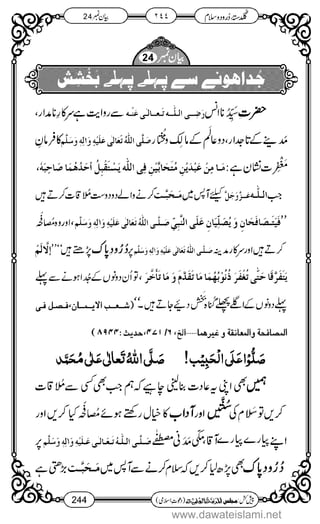 بیان نمبر 24
۲٤٤
گلدستۂ دُرود و سلام
بیان نمبر 24
جُداھونے سے پہلے پہلے بَخْشِش
حضرت سَیِّدُنا انس رَضِی اللّٰہُ تَعَالٰی عَنْہُ سے روایت ہے، سرکارِ نامدار،
مدینے کے تاجدار، دو عالَم کے مالِک و مختار صَلَّی اللّٰہُ تَعَالٰی عَلَیْہِ وَاٰلِہٖ وَسَلَّم کا فرمانِ
مَغْفِرت نشان ہے: مَا مِنْ عَبْدَیْنِ مُتَحَابَّیْنِ فِی اللّٰہِ یَسْتَقْبِلُ اَحَدُھُمَا صَاحِبَہٗ،
جب اللّٰہ عَزَّوَجَلَّ کیلئے آپس میں مَحَبَّت کرنے والے دو دوست مُلاقات کرتے ہیں
’’فَیَتَصَافَحَانِ وَیُصَلِّیَانِ عَلَی النَّبِیِّ صَلَّی اللّٰہُ تَعَالٰی عَلَیْہِ وَاٰلِہٖ وَسَلَّم، اور وہ مُصافَحہ
کرتے ہیں اور سرکارِ مدینہ صَلَّی اللّٰہُ تَعَالٰی عَلَیْہِ وَاٰلِہٖ وَسَلَّم پر دُرُودِ پاک پڑھتے ہیں‘‘’’اِلَّا لَمْ
یَتَفَرَّقَا حَتّٰی تُغْفَرَ ذُنُوْبُھُمَا مَا تَقَدَّمَ وَ مَا تَاَخَّرَ، تو اُن دونوں کے جُدا ہونے سے پہلے
پہلے دونوں کے اگلے پچھلے گناہ بَخْش دیئے جاتے ہیں۔‘‘ (شعب الایمان، فصل فی
المصافحۃ والمعانقۃ و غیرھما...الخ، ٦/٤٧١، حدیث: ٨٩٤٤)
صَلُّوْا عَلَی الْحَبِیْب! صَلَّی اللّٰہُ تَعَالٰی عَلٰی مُحَمَّد
ہمیں بھی اپنی یہ عادت بنالینی چاہیے کہ ہم جب بھی کسی سے مُلاقات
کریں تو سلام کی سُنَّتیں اور آداب کا خیال رکھتے ہوئے مُصافَحہ کیا کریں اور
اپنے پیارے پیارے آقا، مکی مدنی مُصطفٰے صَلَّی اللّٰہُ تَعَالٰی عَلَیْہِ وَاٰلِہٖ وَسَلَّم پر
دُرُودِ پاک بھی پڑھ لیا کریں کہ سلام کرنے سے آپس میں مَحَبَّت بڑھتی ہے
244
www.dawateislami.net